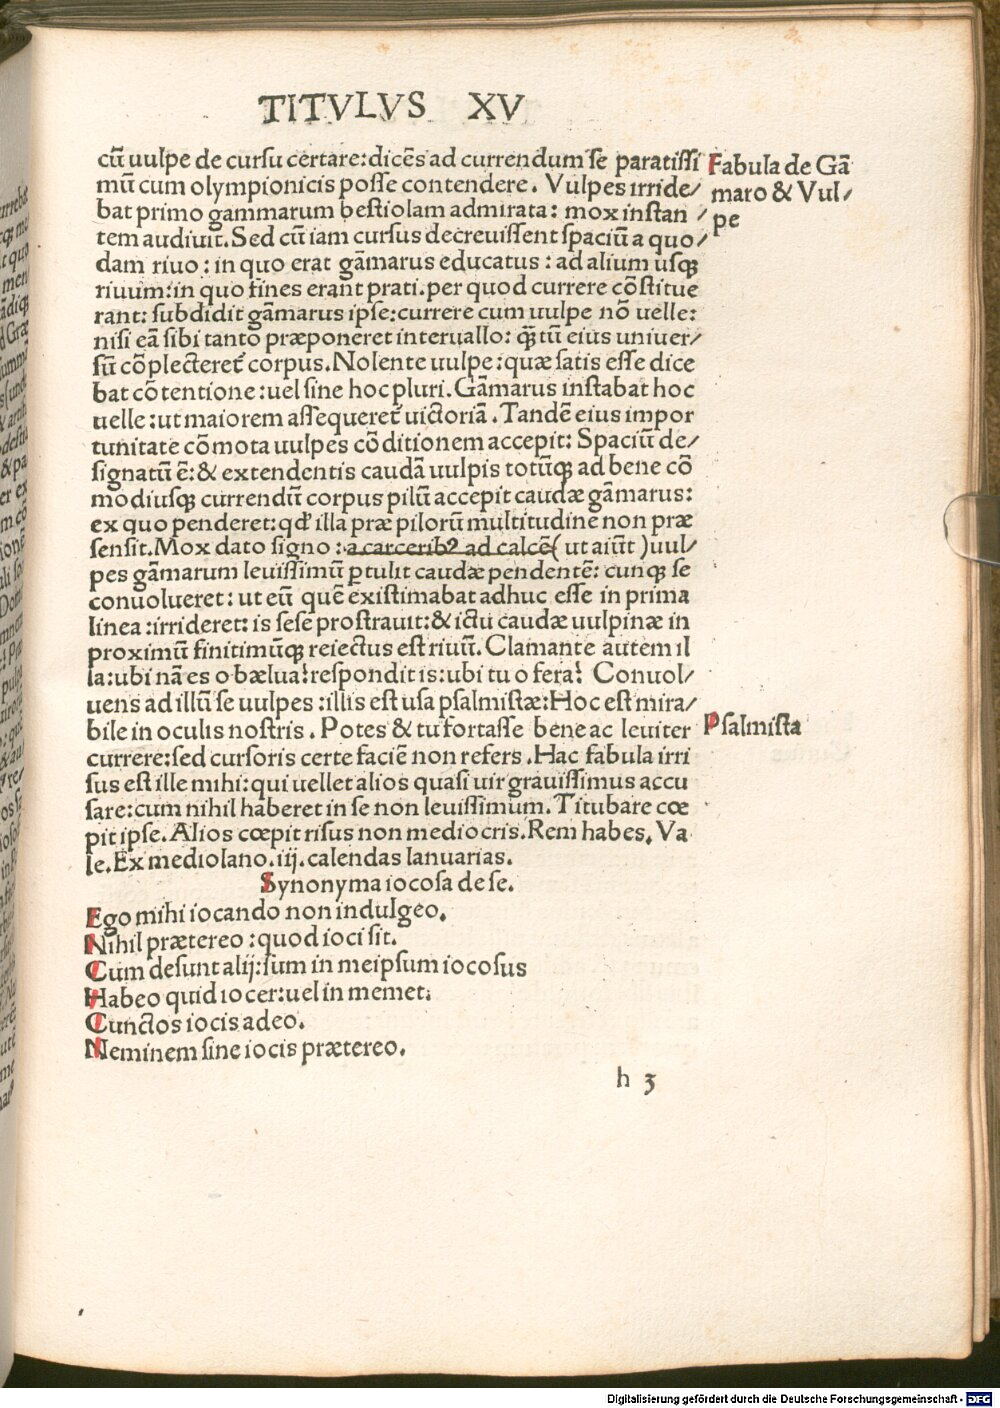 TITVLVS XV
cū uulpe de cursu certare:dicēs ad currendum se paratissi
mū cum olympionicis posse contendere. Vulpes irride/
bat primo gammarum bestiolam admirata: mox instan /
tem audiuit.Sed cū iam cursus decreuissent spaciū a quo/
dam riuo : in quo erat gāmarus educatus : ad alium usqꝫ
riuum:in quo fines erant prati.per quod currere cōstitue
rant: subdidit gāmarus ipse:currere cum uulpe nō uelle:
nisi eā sibi tanto præponeret interuallo: q̄tū eius uniuer/
sū cōplecteret̄ corpus.Nolente uulpe:quæ satis esse dice
bat cōtentione:uel sine hoc pluri.Gāmarus instabat hoc
uelle:ut maiorem assequeret̄ uictoriā.Tandē eius impor
tunitate cōmota uulpes cōditionem accepit: Spaciū de/
signatū ē:& extendentis caudā uulpis totūqꝫ ad bene cō
modiusqꝫ currendū corpus pilū accepit caudæ gāmarus:
ex quo penderet:qđ illa præ pilorū multitudine non præ
sensit.Mox dato signo :a carceribꝰ ad calcē( ut aiūt )uul/
pes gāmarum leuissimū ꝑtulit caudæ pendentē: cunqꝫ se
conuolueret: ut eū quē existimabat adhuc esse in prima
linea :irrideret: is sese prostrauit:& ictu caudæ uulpinæ in
proximū finitimūqꝫ reiectus est riuū.Clamante autem il
la:ubi nā es o bælua?respondit is:ubi tu o fera? Conuol/
uens ad illū se uulpes :illis est usa psalmistæ:Hoc est mira/
bile in oculis nostris . Potes & tu fortasse bene ac leuiter
currere:sed cursoris certe faciē non refers .Hac fabula irri
sus est ille mihi:qui uellet alios quasi uir grauissimus accu
sare:cum nihil haberet in se non leuissimum.Titubare cœ
pit ipse.Alios cœpit risus non mediocris.Rem habes. Va
le.Ex mediolano.iij.calendas Ianuarias.
Synonyma iocosa de se.
Ego mihi iocando non indulgeo.
Nihil prætereo :quod ioci sit.
Cum desunt alij:sum in meipsum iocosus
Habeo quid iocer:uel in memet.
Cunctos iocis adeo.
Neminem sine iocis prætereo.
h 3
Fabula de Gā
maro & Vul/
pe
Psalmista
Digitalisierung gefördert durch die Deutsche Forschungsgemeinschaft - DFG